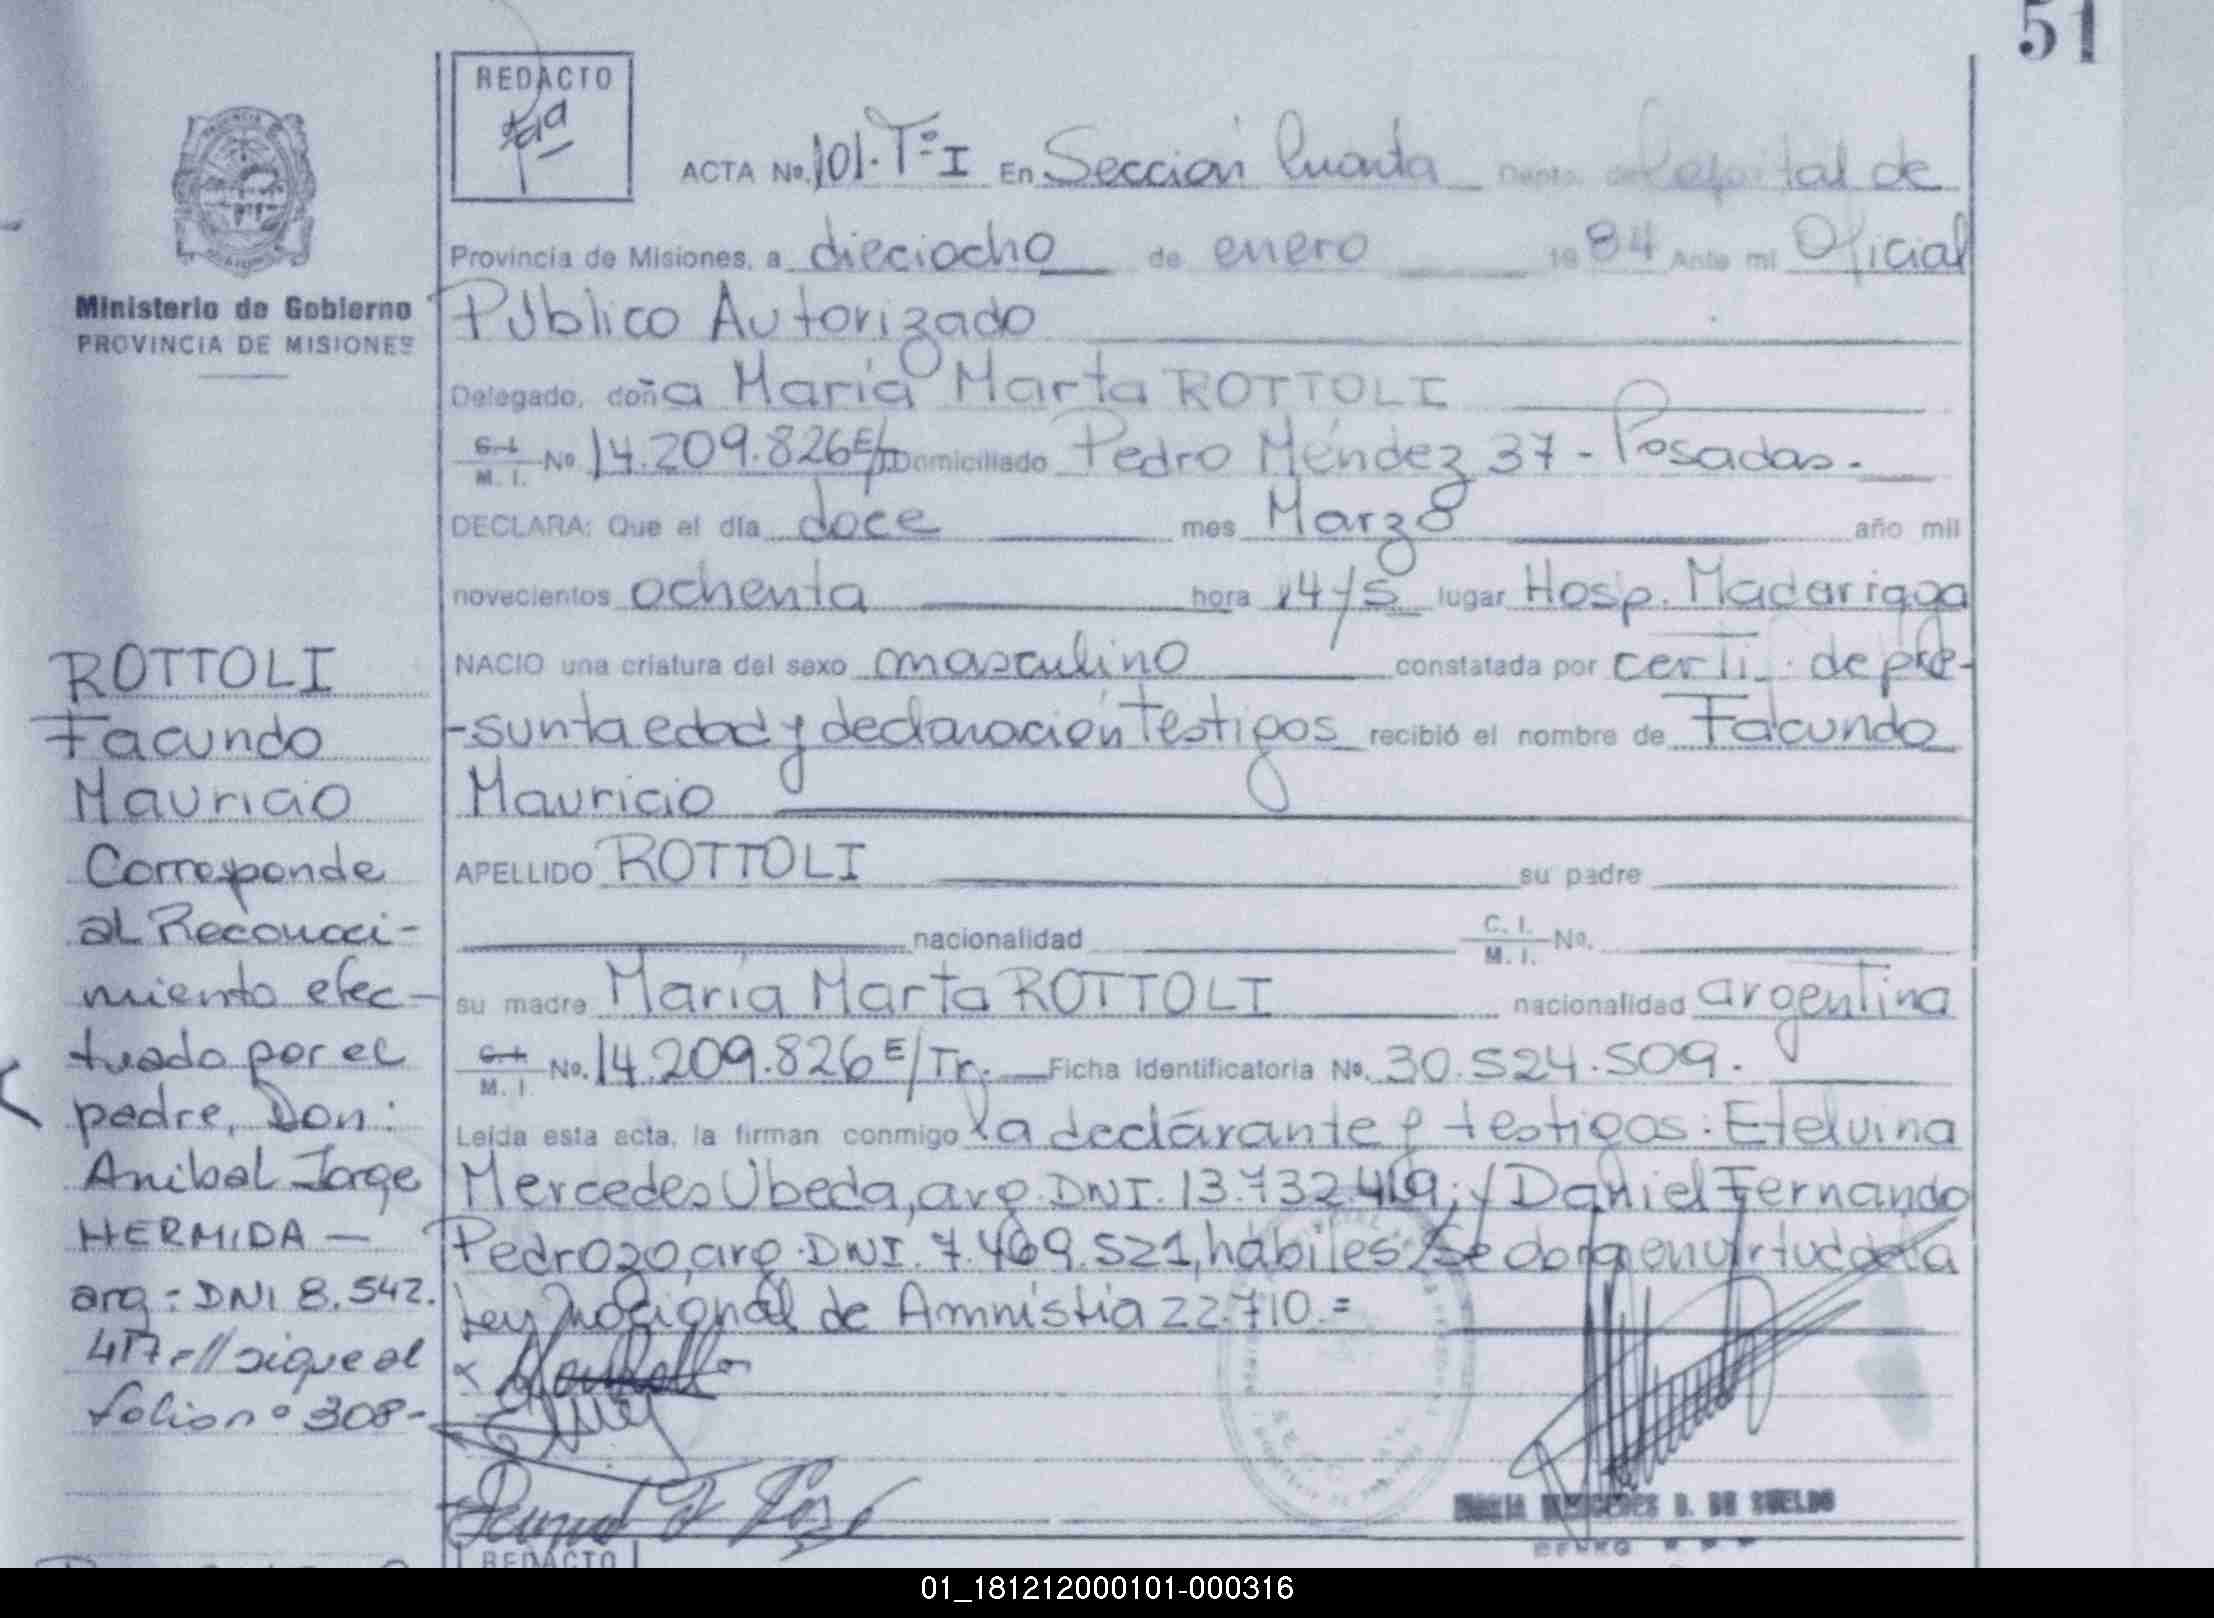 51
REDACTO
ACTA No. 101. Tº I En Sección Cuarta Depto. de Capital de
Provincia de Misiones, a dieciocho de enero 1984 Ante mi Oficial
Ministerio de Gobierno
PROVINCIA DE MISIONES
Público Autorizado
Delegado, doña María Marta ROTTOLI
C. I. / M. I. No 14.209.826 E/Tr Domiciliado Pedro Méndez 37 - Posadas.
DECLARA: Que el día doce mes Marzo año mil
novecientos ochenta hora 14/5 lugar Hosp. Madariaga
NACIO una criatura del sexo masculino constatada por certif. de pre-
-sunta edad y declaración testigos recibió el nombre de Facundo
Mauricio
APELLIDO ROTTOLI su padre
nacionalidad C. I. / M. I. No.
su madre María Marta ROTTOLI nacionalidad argentina
C. I. / M. I. No. 14.209.826 E/Tr. Ficha Identificatoria No. 30.524.509.
Leída esta acta, la firman conmigo la declarante y testigos: Etelvina
Mercedes Ubeda, arg. DNI. 13.732.419; y Daniel Fernando
Pedrozo, arg. DNI. 7.469.521, hábiles. Se obra en virtud de la
Ley Nacional de Amnistía 22.710.=
ROTTOLI
Facundo
Mauricio
Corresponde
al Reconoci-
miento efec-
tuado por el
padre, Don:
Anibal Jorge
HERMIDA —
arg: DNI 8.542.
417.// sigue al
folio nº 308-
MARIA MERCEDES D. DE SUELDO
REDACTO
01_181212000101-000316